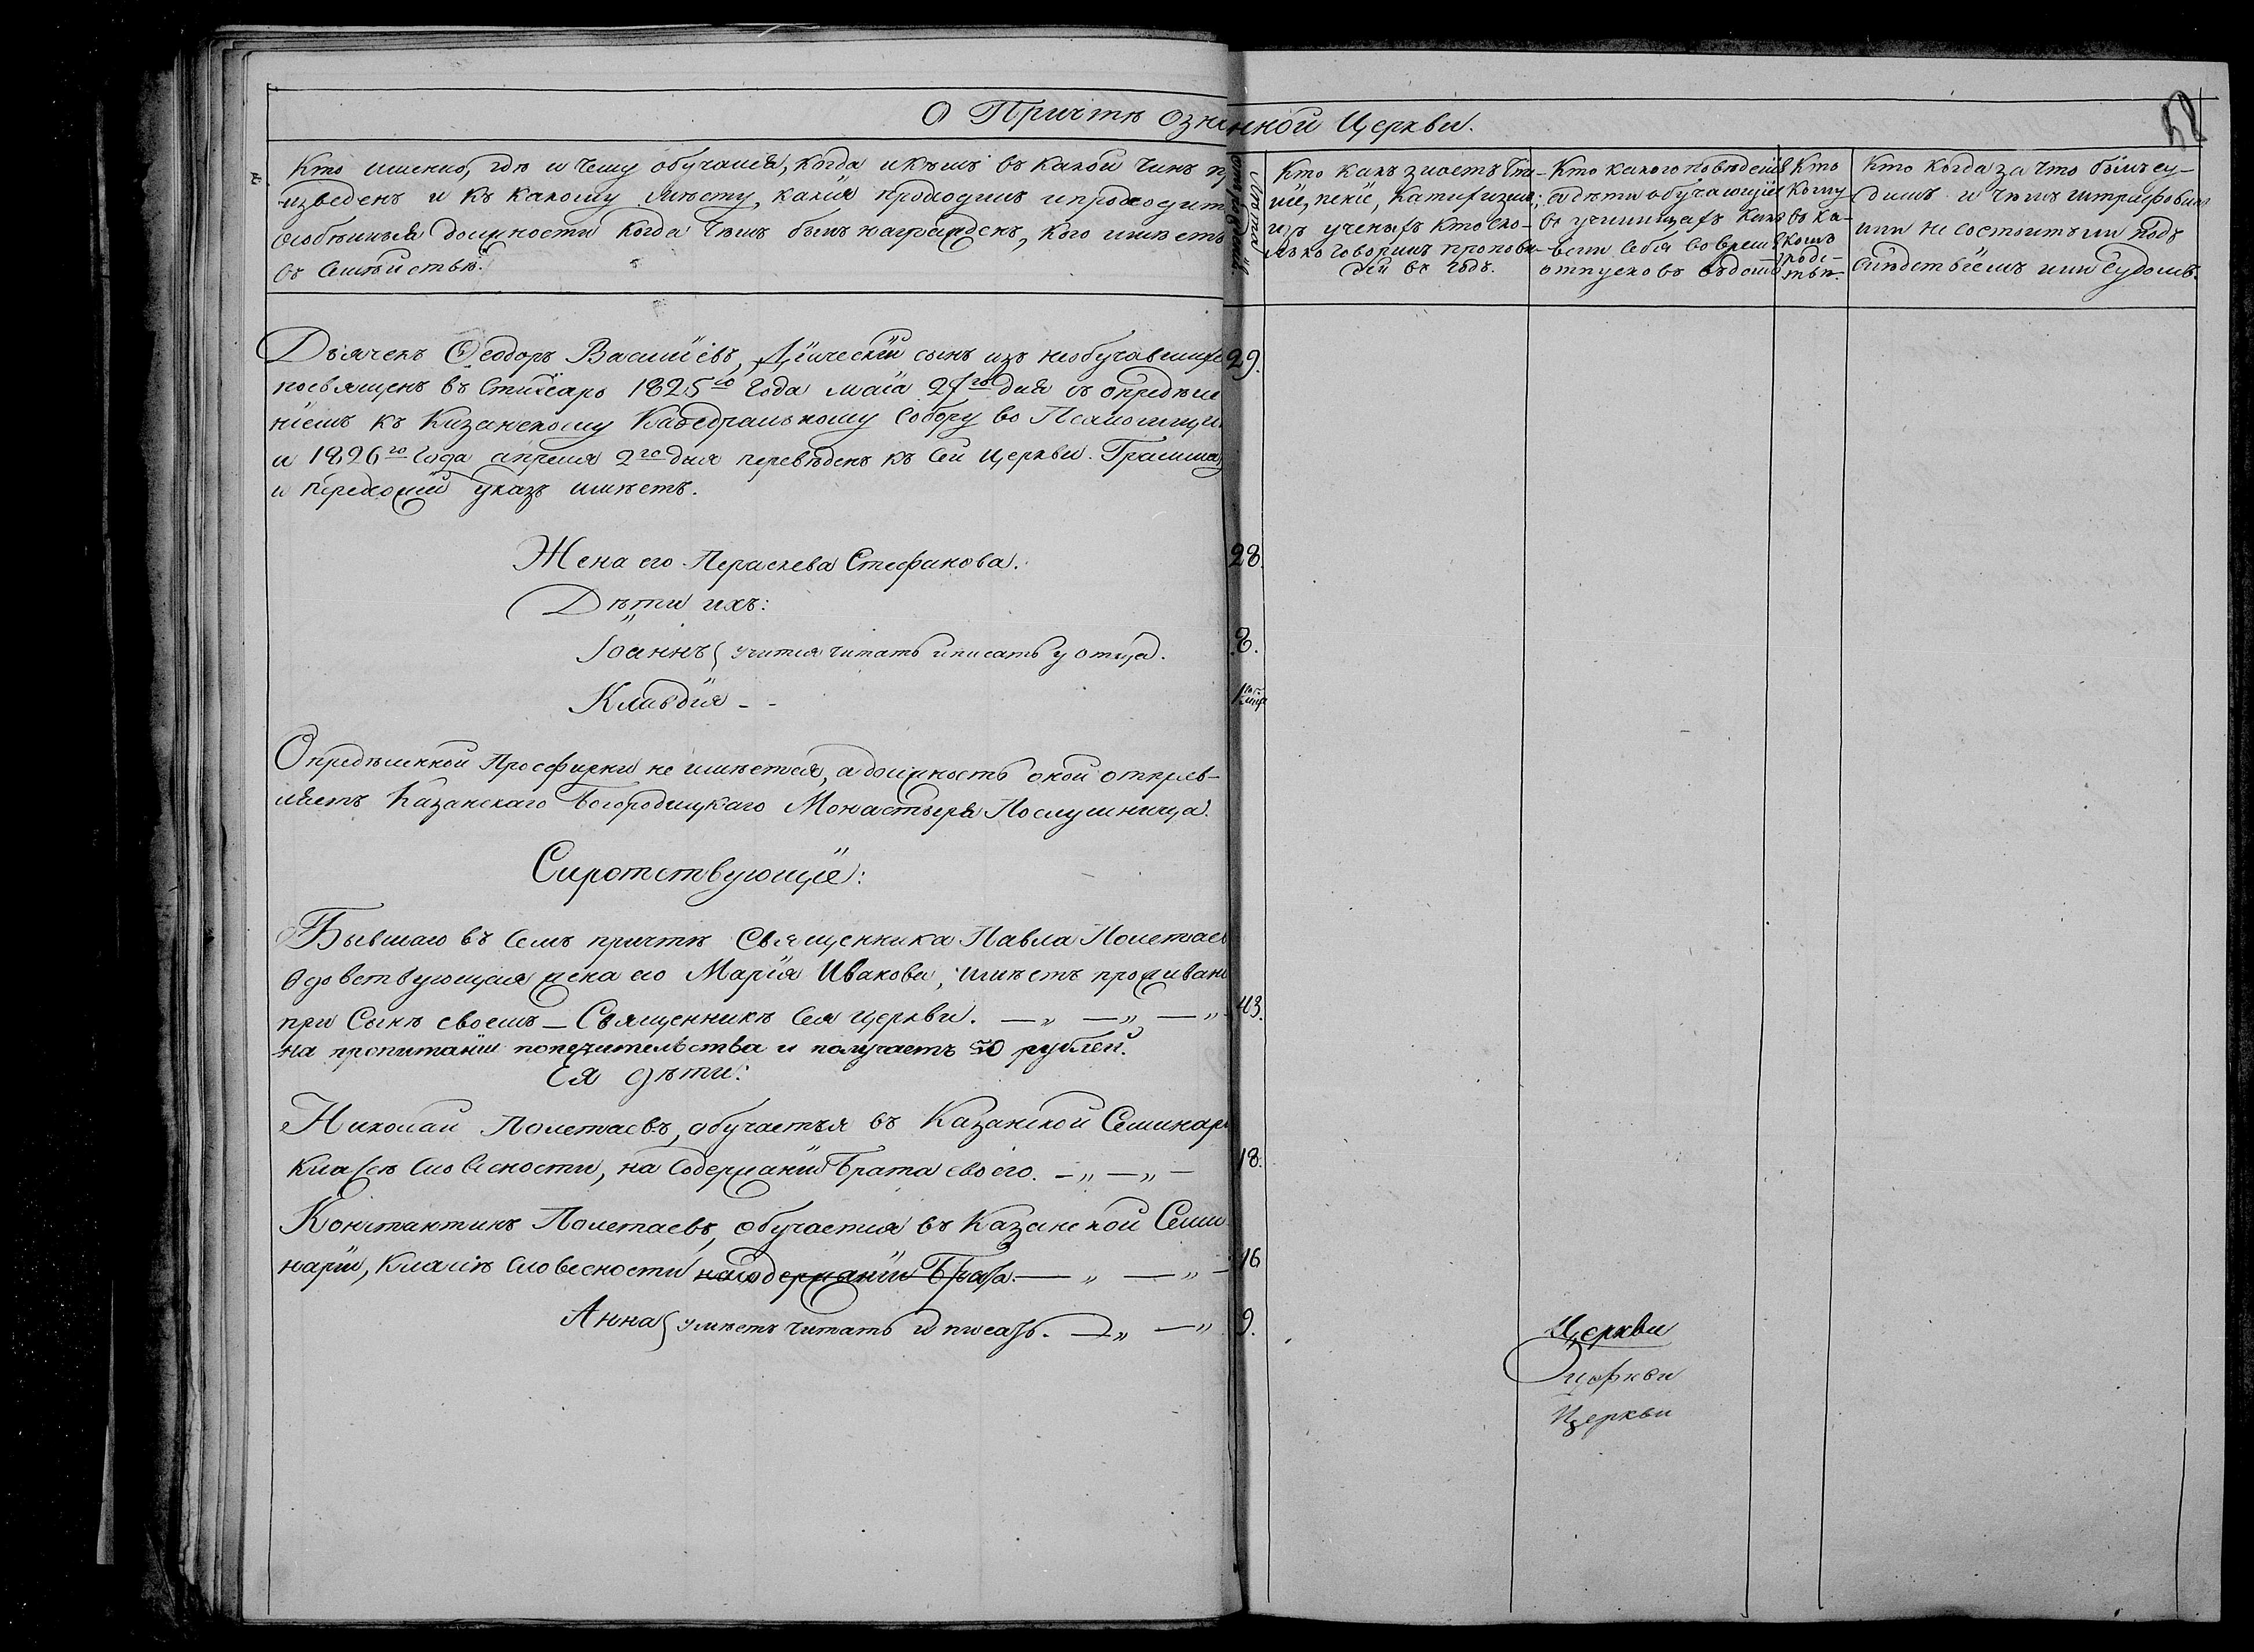 О Причтѣ озна нной Церкви.
52
Кто именно, гдѣ и чему обучался, когда и кѣмъ въ какой чинъ пр
изведенъ и къ какому мѣсту, какія проходилъ и проходитъ
особенныя должности когда чѣмъ былъ награжденъ, кого имѣетъ
въ Семействѣ.
Лѣта отъ рожденія
Кто какъ знаетъ Чте-
ніе, пеніе, катихизисъ;
изъ ученыхъ кто ско-
лько говорилъ пропове-
дей въ годъ.
Кто какого поведенія
и дѣти обучающіеся
въ училищахъ какъ
вели себя во время
отпусковъ въ домъ
Кто
кому
въ ка-
комъ
родс-
твѣ.
Кто когда за что былъ су-
димъ и чѣмъ штрафованъ
или не состоитъ ли подъ
слѣдствіемъ или судомъ.
Дьячекъ Ѳеодоръ Васильевъ, Дьяческій сынъ изъ необучавшихся 29.
посвященъ въ Стихарь 1825го года маія 27го дня съ опредѣле
ніемъ къ Казанскому Каѳедральному Собору во Псаломщики
а 1826го года апрѣля 2го дня переведенъ къ сей Церкви. Грамма
и переходный указъ имѣетъ.
Жена его Параскева Стефанова. 28.
Дѣти ихъ:
Іоаннъ { учится читать и писать у отца. 8.
Клавдія - - 1
Опредѣленной Просфирни не имѣется, а должность оной отправ-
ляетъ Казанскаго Богородицкаго Монастыря Послушница.
Сиротствующіе:
Бывшаго въ семъ причтѣ Священника Павла Полетаев
вдовствующая жена его Марія Иванова, имѣетъ проживан
при Сынѣ своемъ — Священникѣ сея церкви. — „ — „ — „ 43.
на пропитаніи попечительства и получаетъ 50 рублей.
Ея дѣти:
Николай Полетаевъ, обучается въ Казанской Семинар
классѣ словесности, на содержаніи Брата своего. — „ — „ — 18.
Константинъ Полетаевъ, обучается въ Казанской Семи
наріи, классѣ словесности на содержаніи Брата. — „ — „ — 16
Анна { умѣетъ читать и писать. — „ — „ 9.
Церкви
Церкви
Церкви